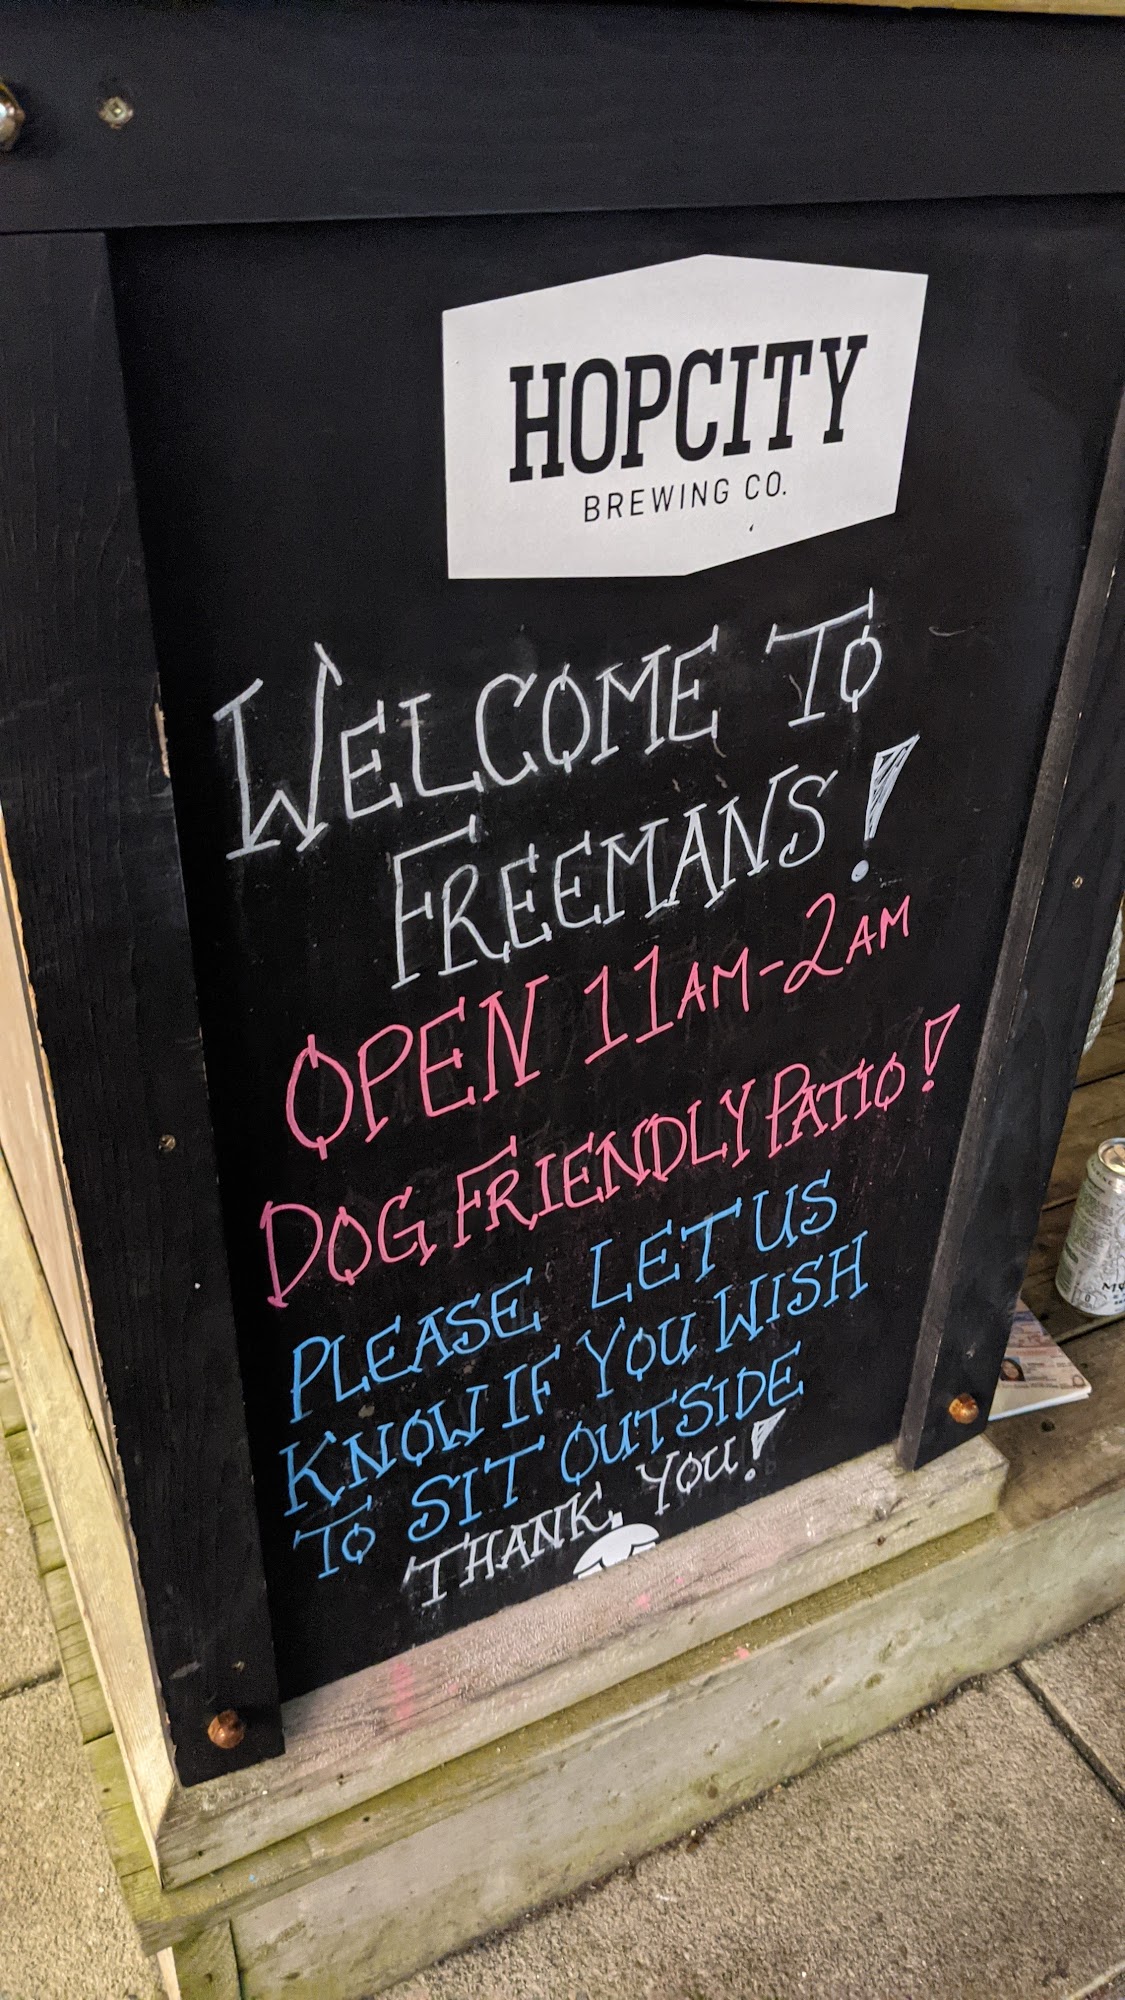 HOPCITY
BREWING CO.
WELCOME TO
FREEMANS!
OPEN 11AM-2AM
DOG FRIENDLY PATIO!
PLEASE LET US
KNOW IF YOU WISH
TO SIT OUTSIDE
THANK YOU!